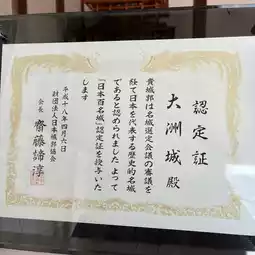 認定証
大洲城殿
貴城郭は名城選定会議の審議を
経て日本を代表する歴史的名城
であると認められました よって
『日本百名城』認定証を授与いた
します
平成十八年四月六日
財団法人日本城郭協会
会長 齋藤諦淳